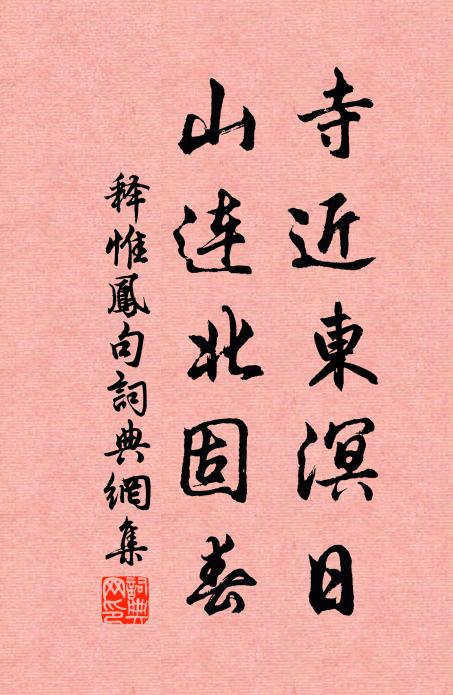 寺近東溟日
山連北固春
释惟鳳句詞典網集
詞典网印